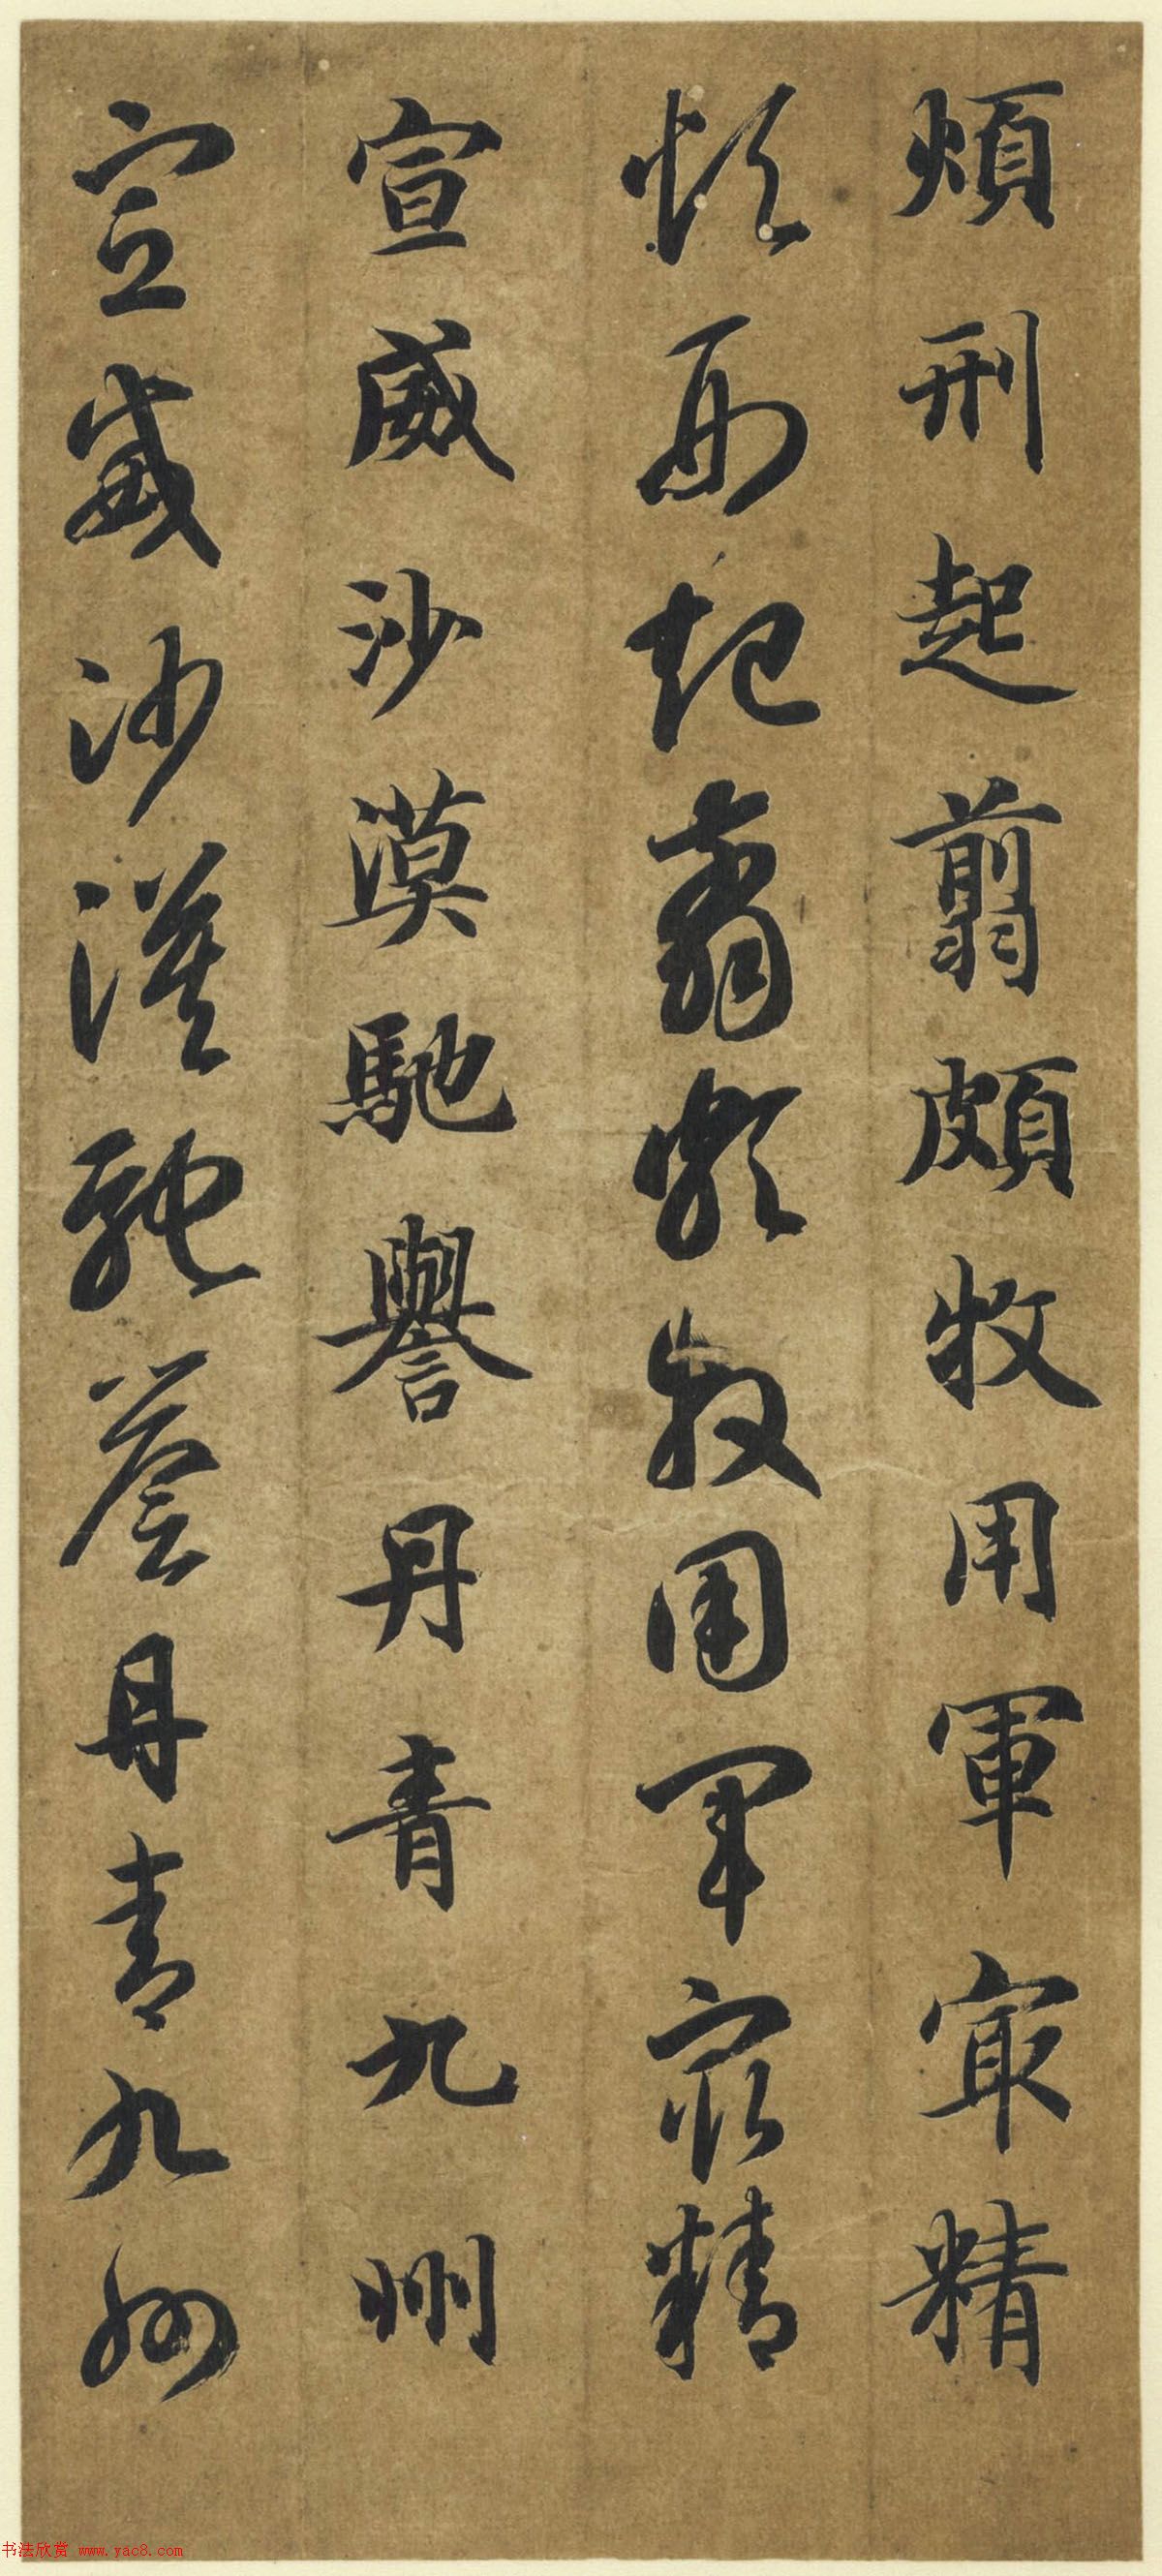 煩刑起翦頗牧用軍寂精
煩刑起翦頗牧用軍寂精
宣威沙漠馳譽丹青九州
宣威沙漠馳譽丹青九州
书法欣赏 www.yac8.com